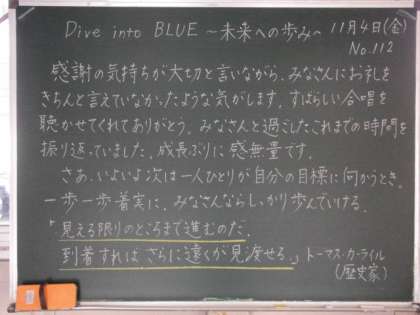 Dive into BLUE ~未来への歩み~ 11月4日(金)
No.112
感謝の気持ちが大切と言いながら、みなさんにお礼を
きちんと言えていなかったような気がします。すばらしい合唱を
聴かせてくれてありがとう。みなさんと過ごしたこれまでの時間を
振り返っていました。成長ぶりに感無量です。
さあ、いよいよ次は一人ひとりが自分の目標に向かうとき。
一歩一歩着実に、みなさんならしっかり歩んでいける。
「見える限りのところまで進むのだ。
到着すれば、さらに遠くが見渡せる。」トーマス・カーライル
(歴史家)